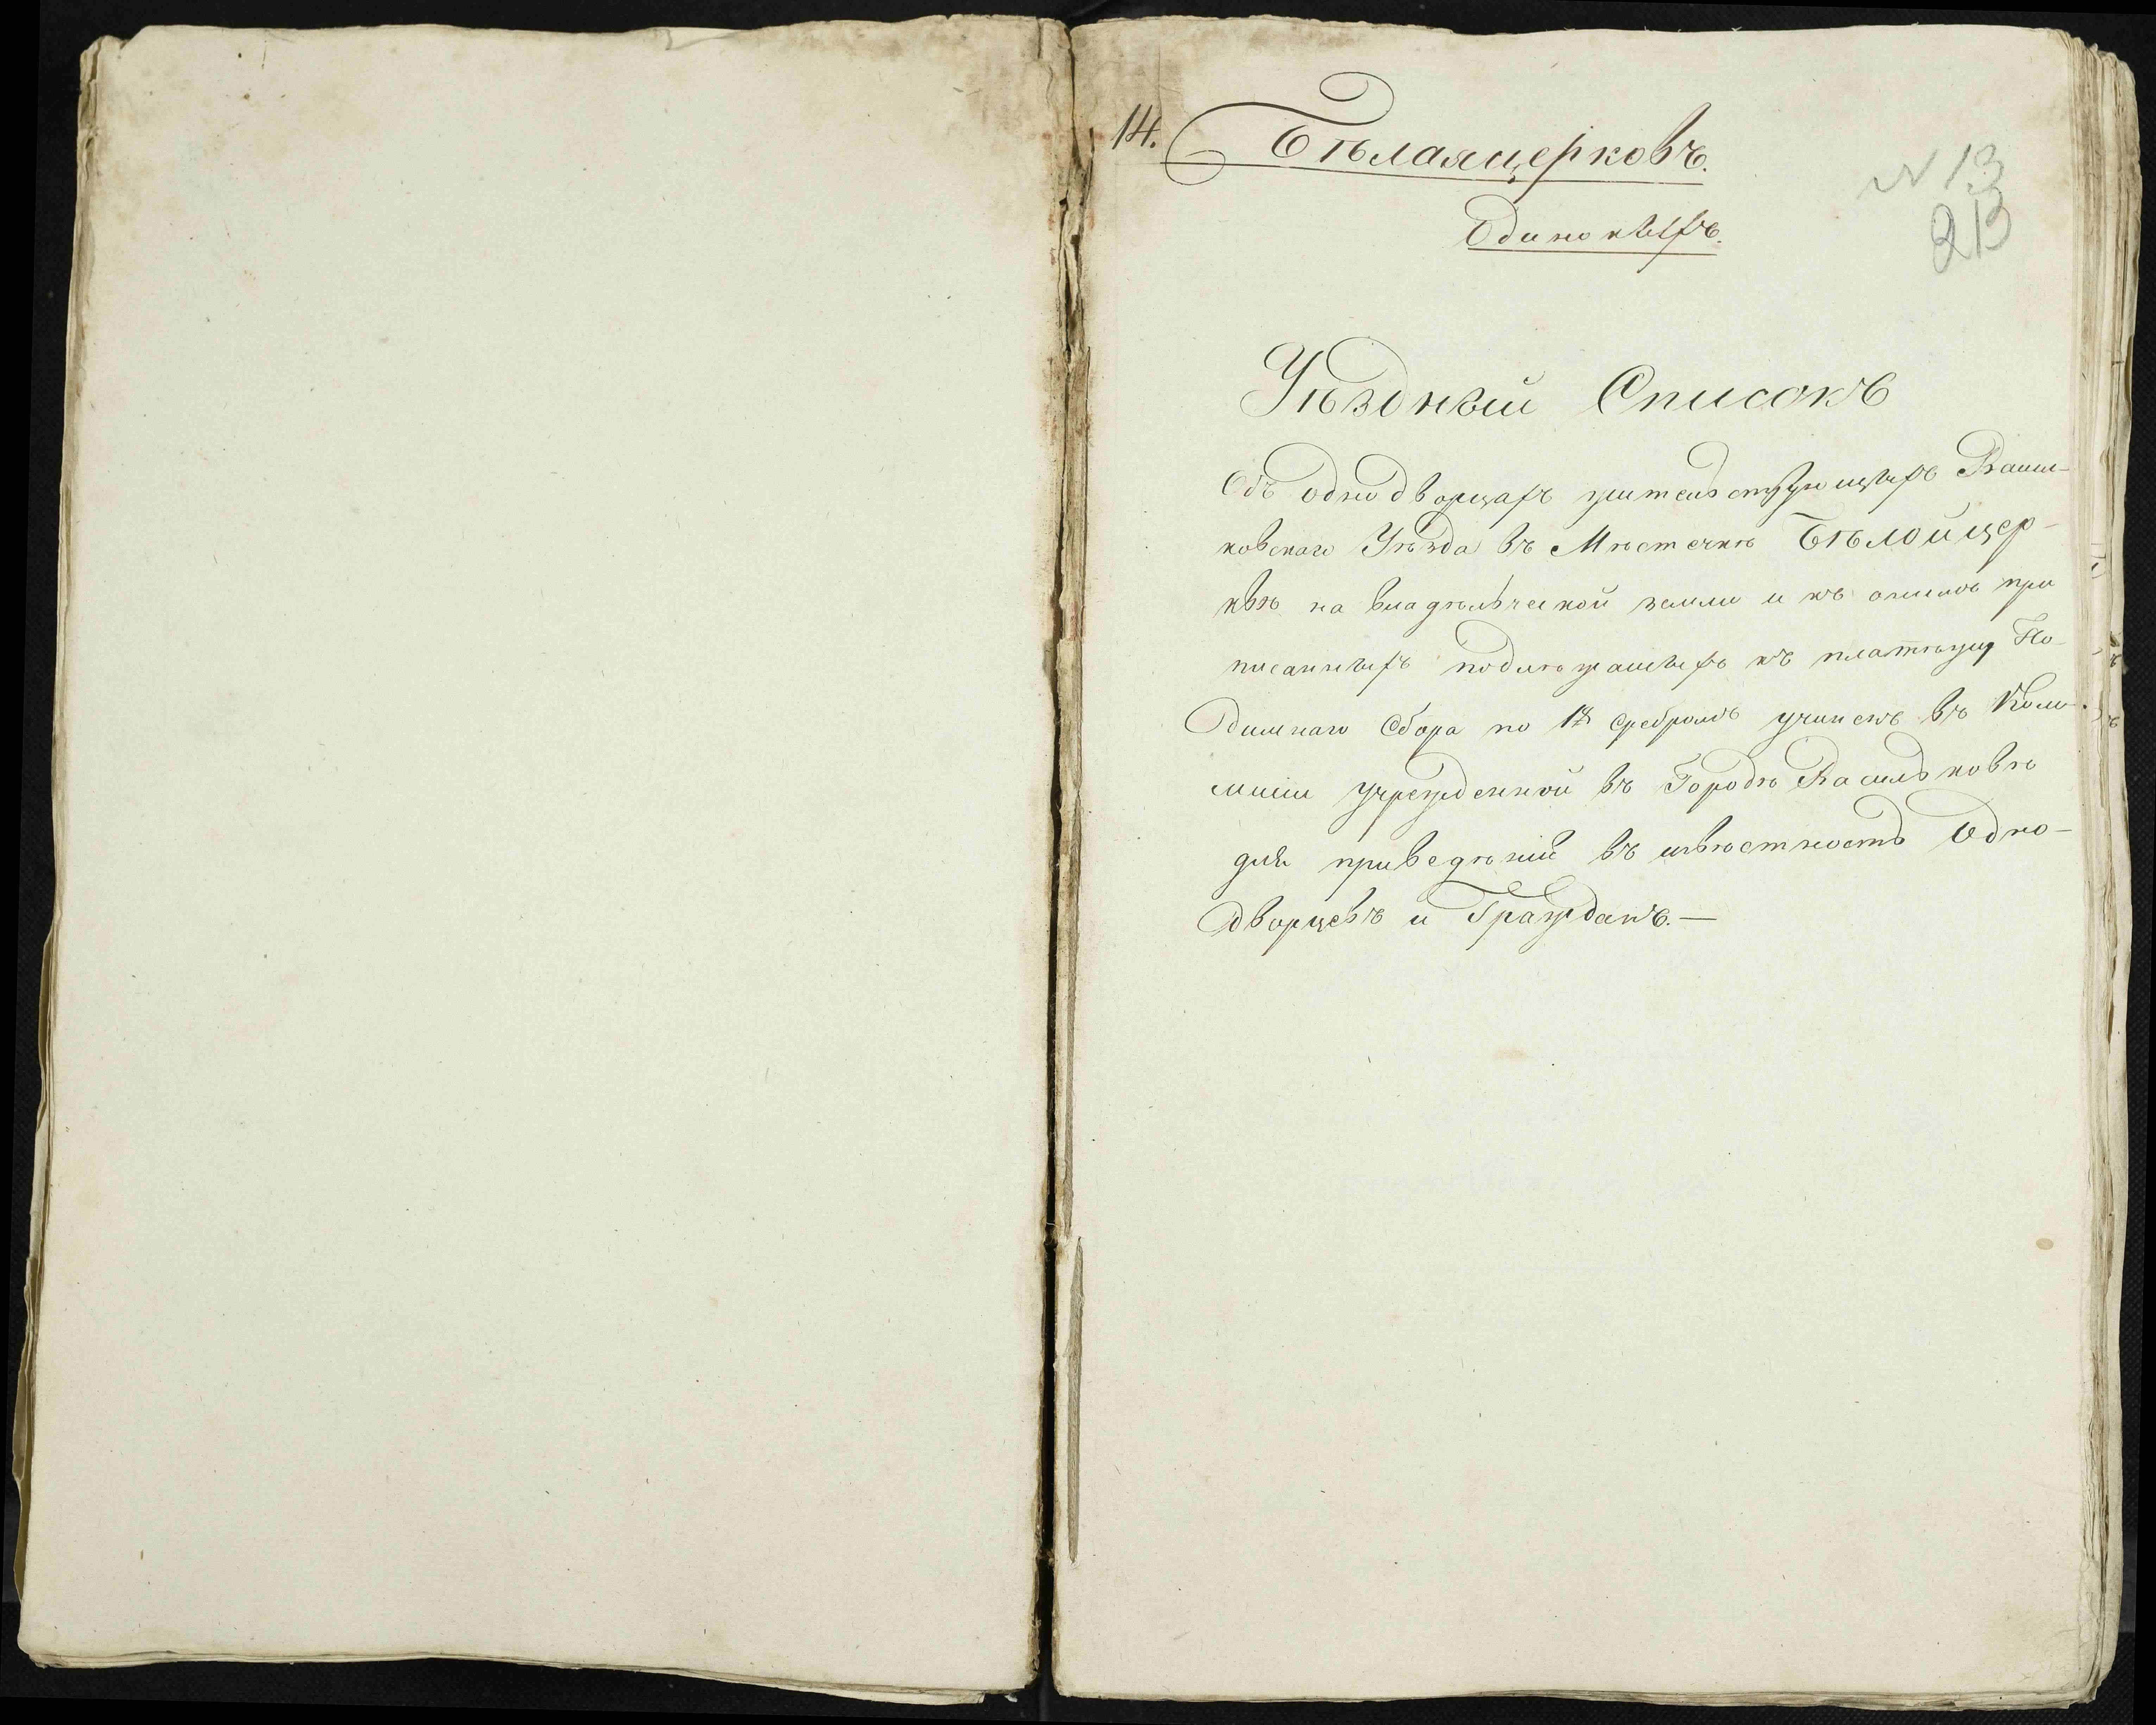 14. Бѣлаяцерковь.
Одинокихъ.
N 13
213
Уѣздный Списокъ
Объ однодворцахъ жительствующихъ Василь-
ковскаго Уѣзда въ Мѣстечкѣ Бѣлойцер-
квѣ на владѣльческой земли и къ онымъ при
писанныхъ подлежащихъ къ платежу По-
дымнаго Сбора по 1 р сребромъ учиненъ въ Ком-
мисіи учрежденной въ Городѣ Васильковѣ
для приведенія въ извѣстность Одно-
дворцевъ и Гражданъ.—